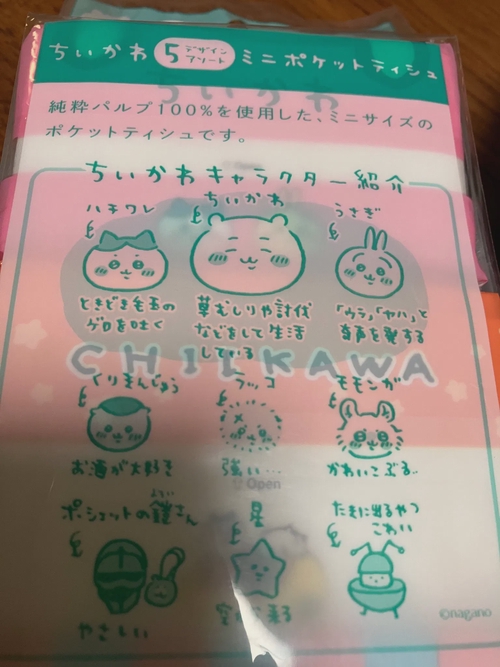 ちいかわ 5 デザイン アソート ミニポケットティシュ
純粋パルプ100%を使用した、ミニサイズの
ポケットティシュです。
ちいかわキャラクター紹介
ハチワレ
ときどき毛玉の
ゲロを吐く
ちいかわ
草むしりや討伐
などをして生活
している
うさぎ
「ウラ」「ヤハ」と
奇声を発する
CHIIKAWA
くりまんじゅう
お酒が大好き
ラッコ
強い…
モモンガ
かわいこぶる..
Open
ポシェットの鎧さん
よろい
やさしい
星
空から来る
たまに出るやつ
こわい
©nagano